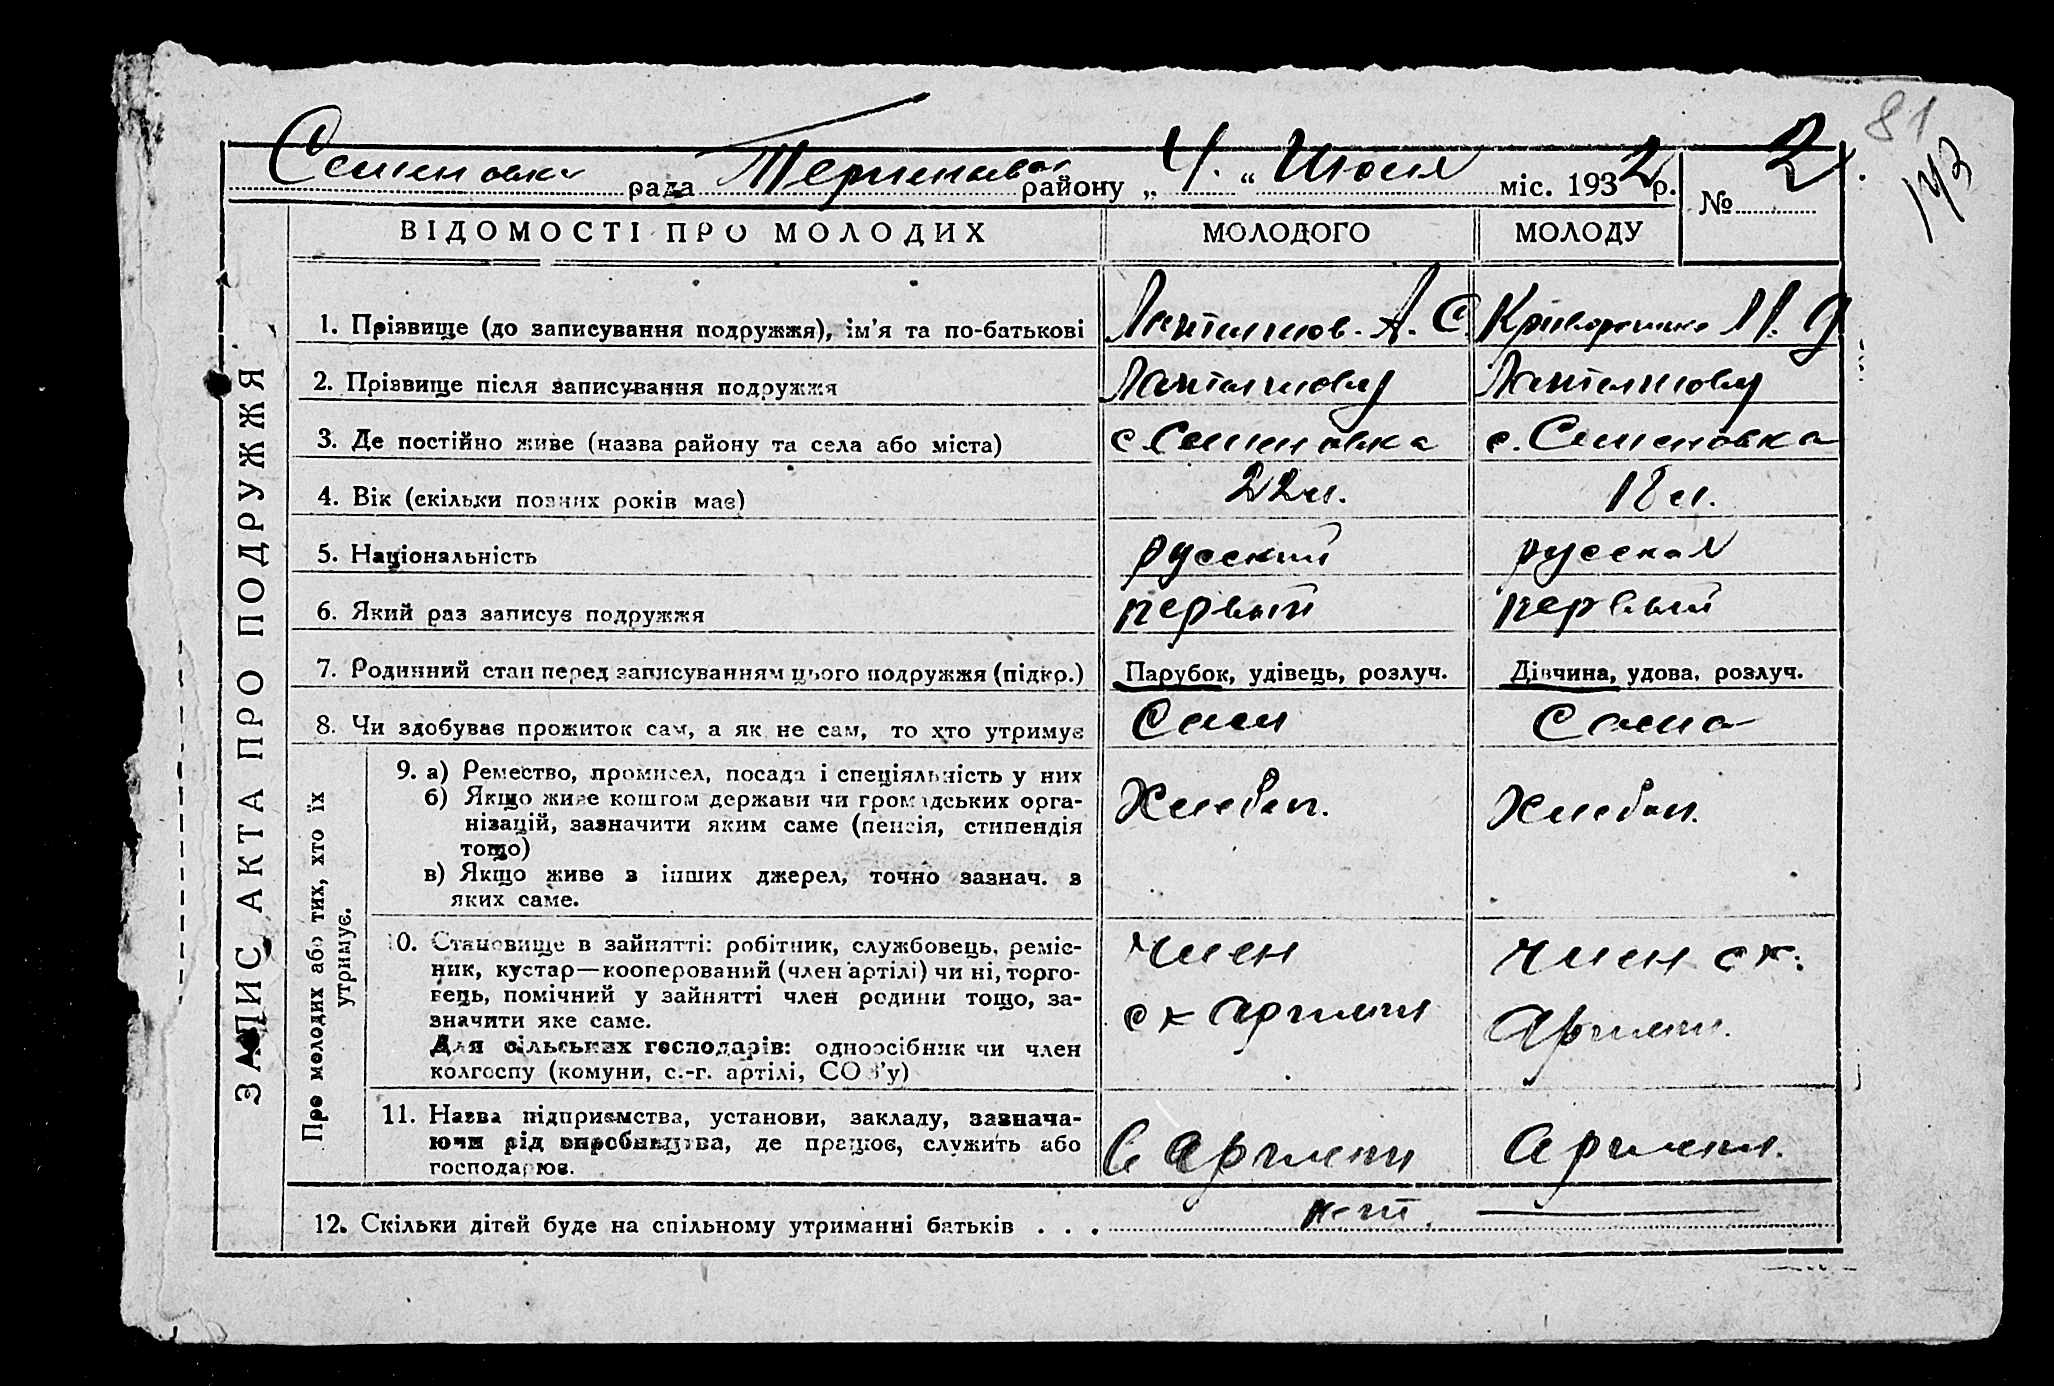 81
173
Семеновка рада района району „ 4. “ Июля міс. 1932 р. № 2.
ВІДОМОСТІ ПРО МОЛОДИХ МОЛОДОГО МОЛОДУ
ЗАПИС АКТА ПРО ПОДРУЖЖЯ
1. Прізвище (до записування подружжя), ім’я та по-батькові А. С.
2. Прізвище після записування подружжя
3. Де постійно живе (назва району та села або міста) с. Семеновка с. Семеновка
4. Вік (скільки повних років має) 22 л. 18 л.
5. Національність русский русская
6. Який раз записує подружжя первый первый
7. Родинний стан перед записуванням цього подружжя (підкр.) Парубок, удівець, розлуч. Дівчина, удова, розлуч.
8. Чи здобуває прожиток сам, а як не сам, то хто утримує Сам Сама
Про молодих або тих, хто їх
утримує.
9. а) Ремество, промисел, посада і спеціяльність у них Хлебоп. Хлебоп.
б) Якщо живе коштом держави чи громадських орга-
нізацій, зазначити яким саме (пенсія, стипендія
тощо)
в) Якщо живе з інших джерел, точно зазнач. з
яких саме.
10. Становище в зайнятті: робітник, службовець, реміс- член член ск.
ник, кустар—кооперований (член артілі) чи ні, торго-
вець, помічний у зайнятті член родини тощо, за-
значити яке саме. ск артили Артили.
Для сільських господарів: одноосібник чи член
колгоспу (комуни, с.-г. артілі, СОЗ’у)
11. Назва підприємства, установи, закладу, зазнача-
ючи рід виробництва, де працює, служить або в Артели Артели.
господарює.
12. Скільки дітей буде на спільному утриманні батьків . . . нет.